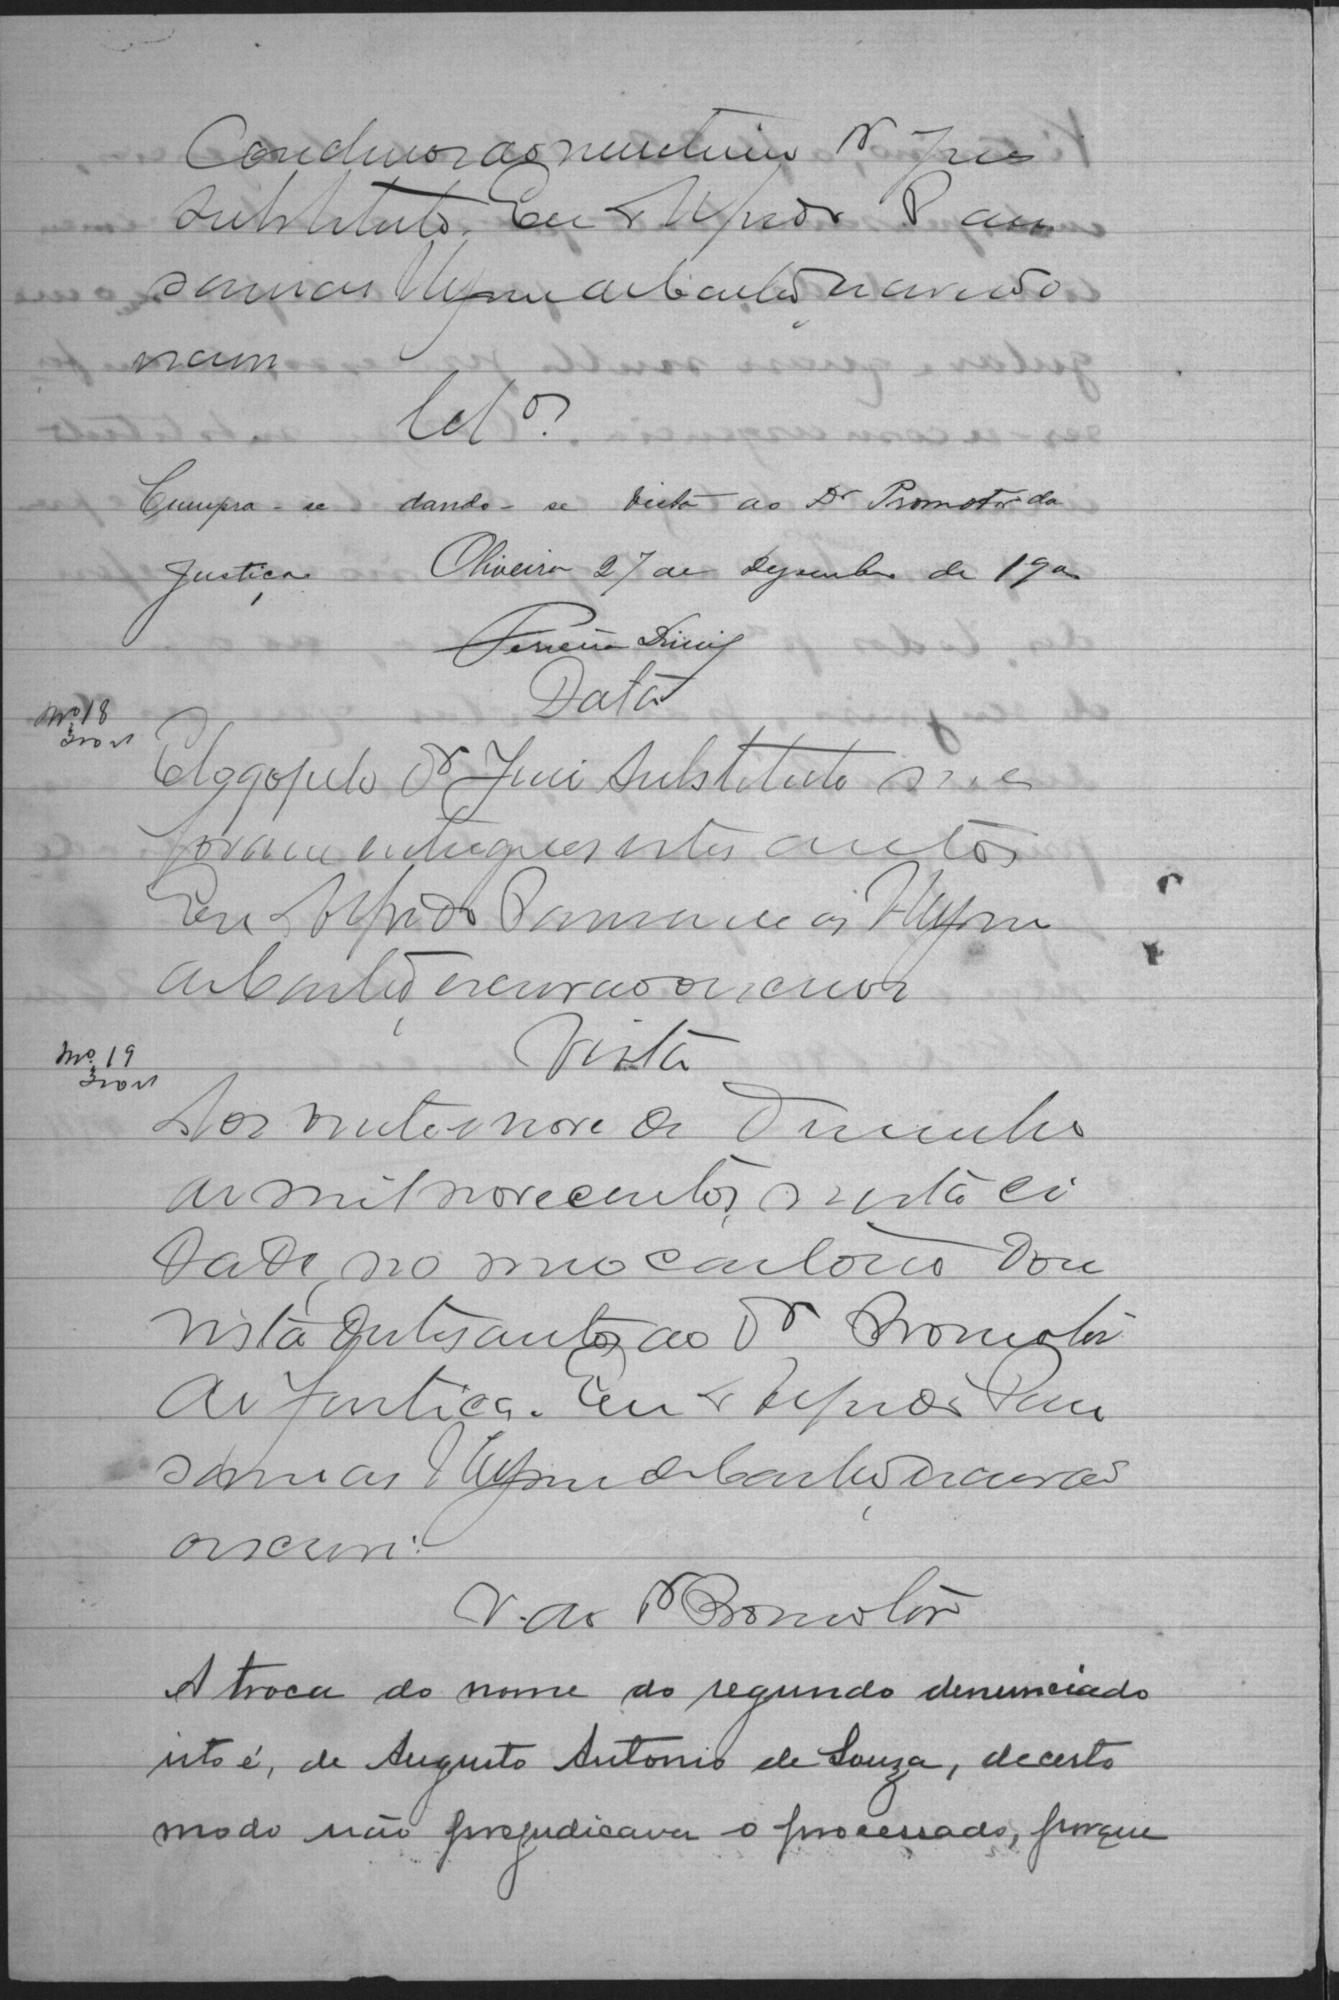 Conclusos ao meretissimo Dr Juiz
substituto. Eu Alfredo Pau
sanias Heyn de Castro, escrivão
Clos.
Cumpra-se dando-se vista ao Dr Promotor da
Justiça Oliveira 27 de Dezembro de 190
Data
No 18
E logo pelo Dr Juiz Substituto me
foram entregues estes autos
Eu Alfredo Pausanias
de Castro, escrivão o escrevi
Vista
No 19
Aos vinte e nove de Dezembro
de mil novecentos, nesta ci
dade, no meo cartorio dou
vista destes autos ao Dr Promotor
de Justiça. Eu Alfredo Pau
sanias de Castro, escrivão
o escrevi.
V. ao Dr Promotor
A troca do nome do segundo denunciado
isto é, de Augusto Antonio de Souza, de certo
modo não prejudicava o processado, porque